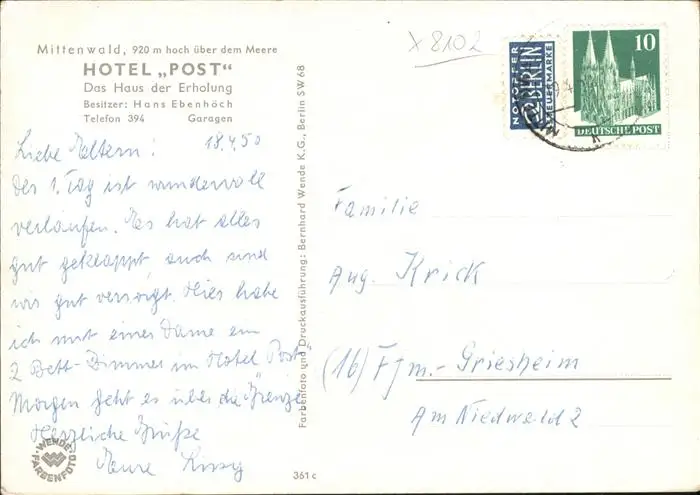 Mittenwald, 920 m hoch über dem Meere
HOTEL „POST“
Das Haus der Erholung
Besitzer: Hans Ebenhöch
Telefon 394 Garagen
18.4.50
Liebe Eltern!
Der 1. Tag ist wundervoll
verlaufen. Es hat alles
gut geklappt, auch sind
wir gut versorgt. Hier habe
ich mit einer Dame ein
2 Bett-Zimmer im Hotel „Post“.
Morgen geht es über die Grenze
Herzliche Grüße
Eure
WENDE
FARBENFOTO
361 c
Farbenfoto und Druckausführung: Bernhard Wende K.G., Berlin SW 68
X 8102
NOTOPFER
2 BERLIN
STEUERMARKE
10
DEUTSCHE POST
Familie
Aug. Krick
(16) Ffm.-Griesheim
Am Niedwald 2